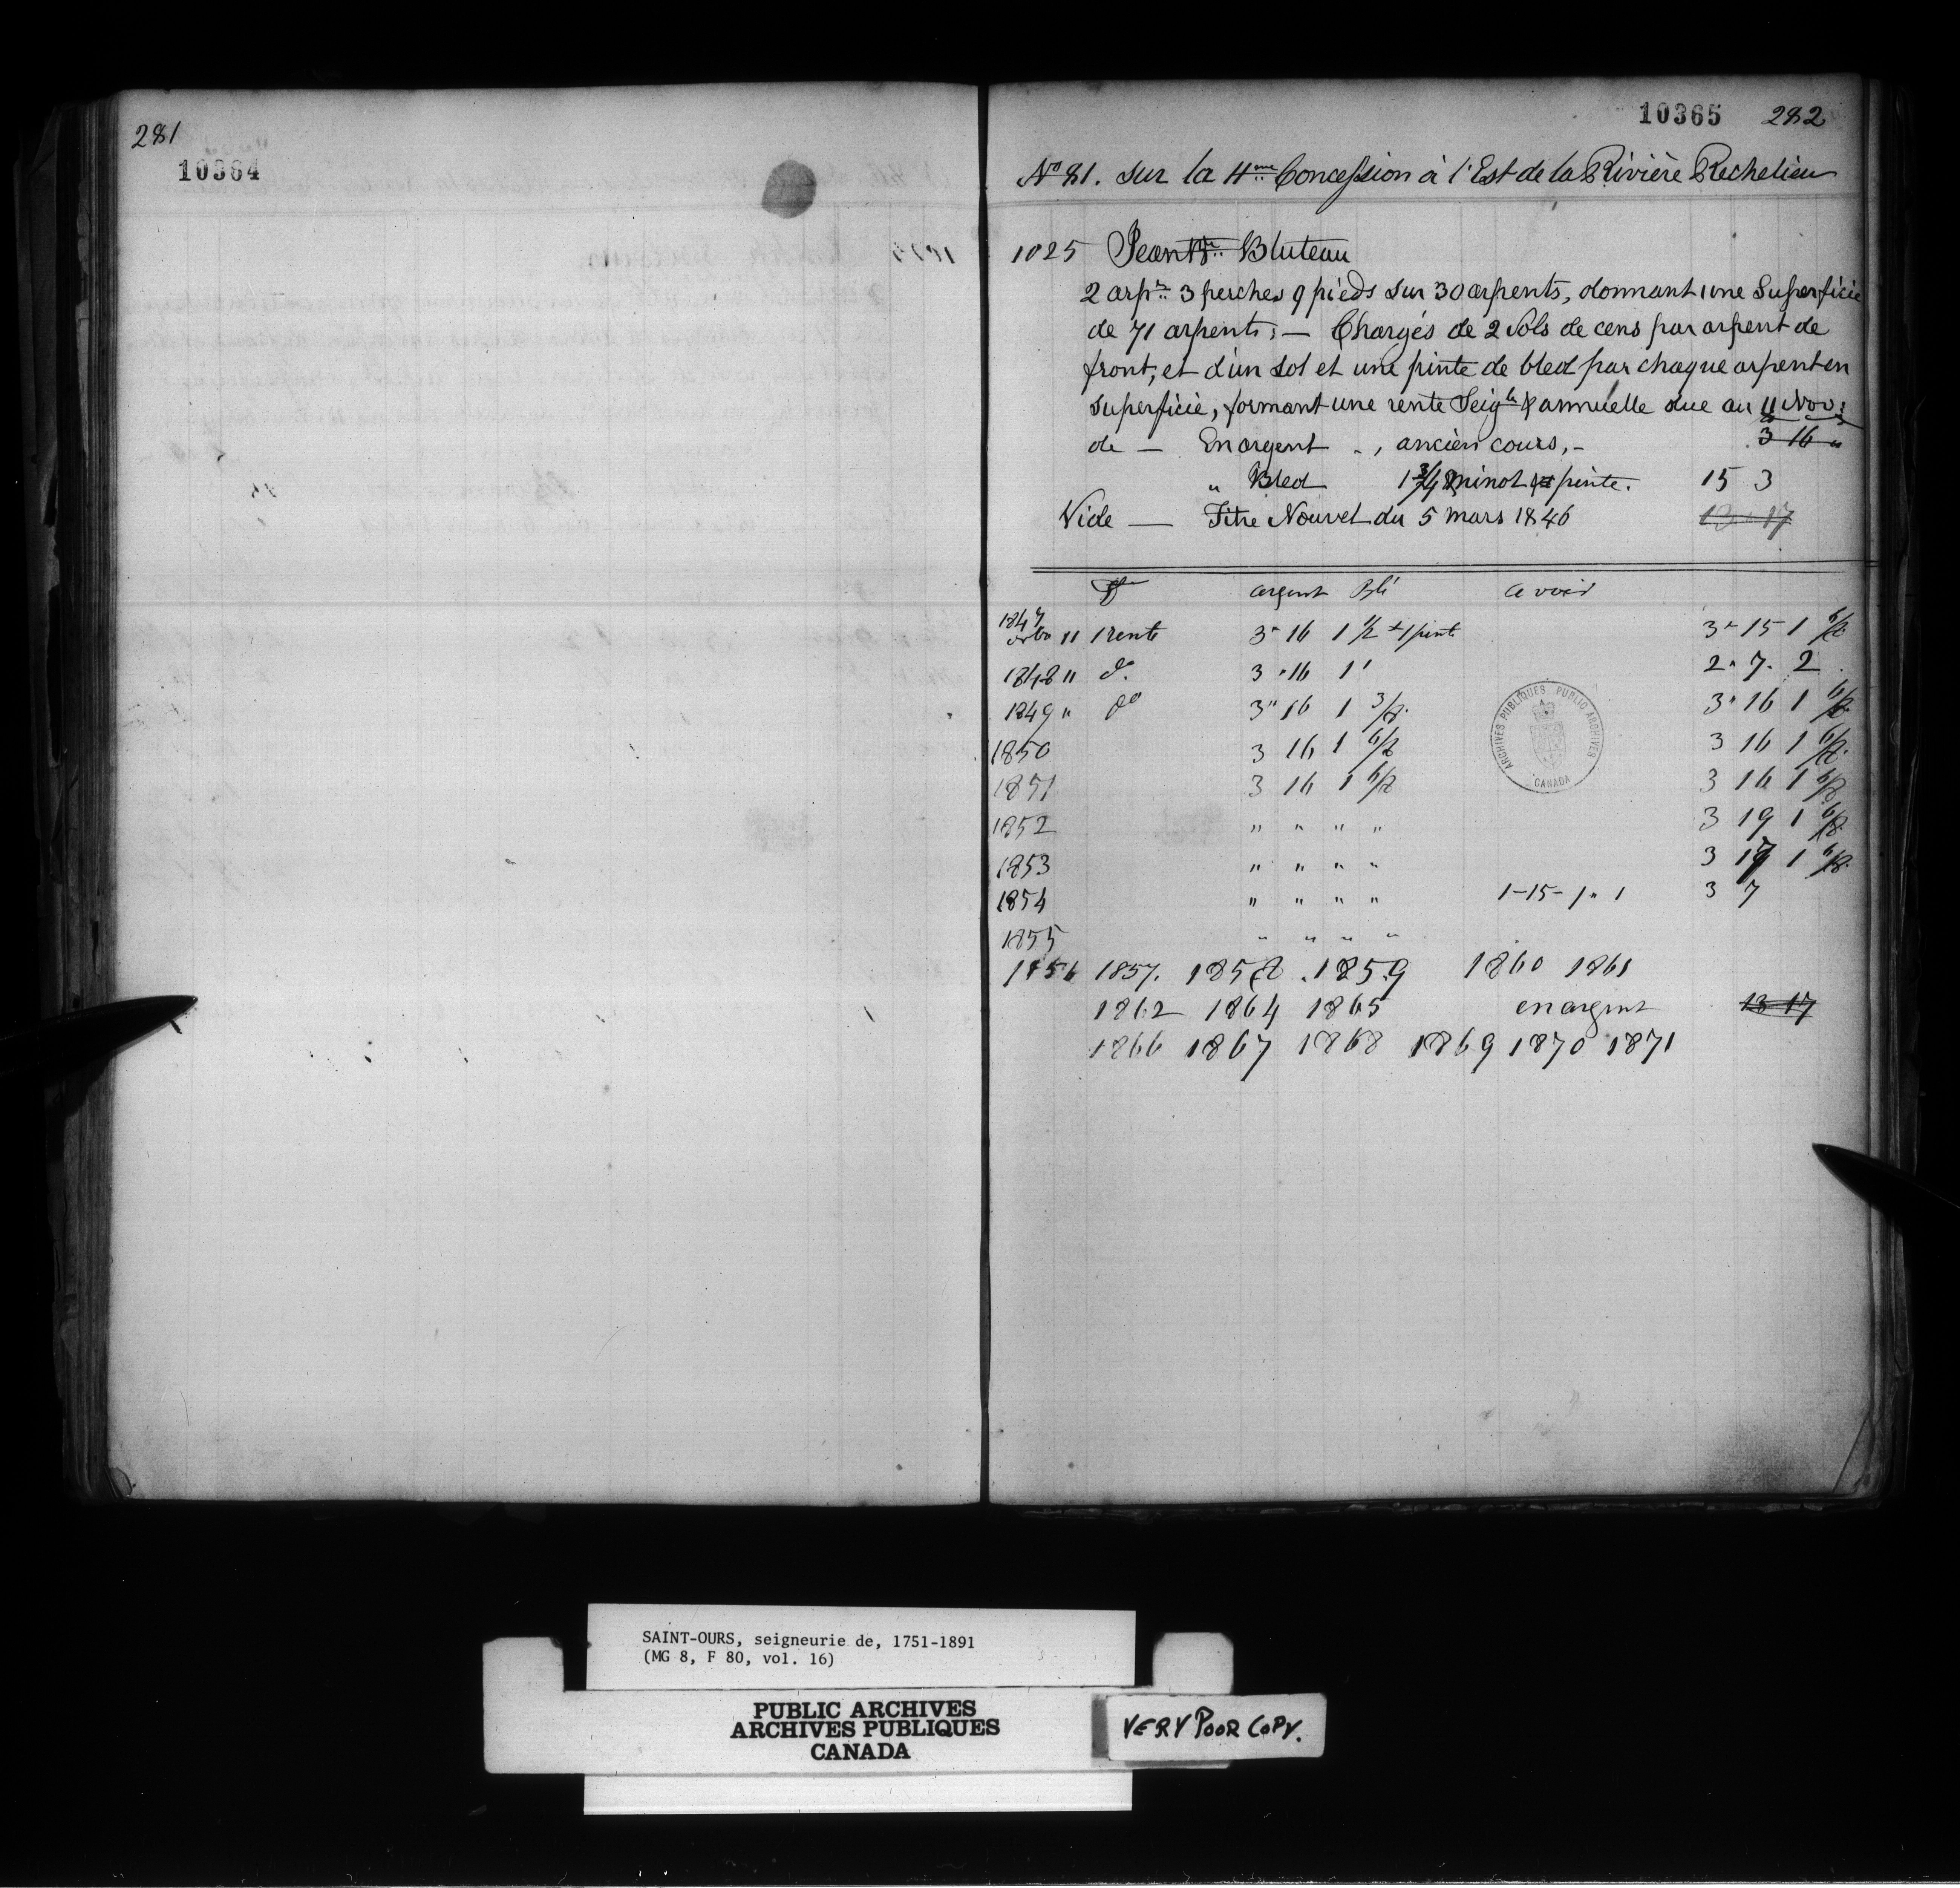 281
10364
10365 282
No 81. sur la 4me Concession à l'Est de la Rivière Rechelieu
1025 Jean Bte Bluteau
2 arpts 3 perches 9 pieds sur 30 arpents, donnant une Superficie
de 71 arpents; — Chargés de 2 Sols de cens par arpent de
front, et d'un sol et une pinte de bled par chaque arpent en
superficie, formant une rente Seigle & annuelle due au 11 Nov:
de — En argent ., ancien cours, - 3 16 "
" Bled minot pinte. 15 3
Vide — Titre Nouvel du 5 Mars 1846 13 17
argent Blé avoir
1847 11 1 rente 3 " 16 1 1/2 + 1 pinte 3 " 15 1
1848 11 do 3 " 16 1 2 " 7 " 2
1849 " do 3 " 16 1 3 " 16 1
1850 3 16 1 3 16 1
1851 3 16 1 3 16 1
1852 " " " " 3 19 1
1853 " " " " 3 1
1854 " " " " 1-15-1"1 3 7
1855 " " " "
1856 1857. 1858 . 1859 1860 1861
1862 1864 1865 en argent 13 17
1866 1867 1868 1869 1870 1871
ARCHIVES PUBLIQUES PUBLIC ARCHIVES
CANADA
SAINT-OURS, seigneurie de, 1751-1891
(MG 8, F 80, vol. 16)
PUBLIC ARCHIVES
ARCHIVES PUBLIQUES
CANADA
VERY POOR COPY.